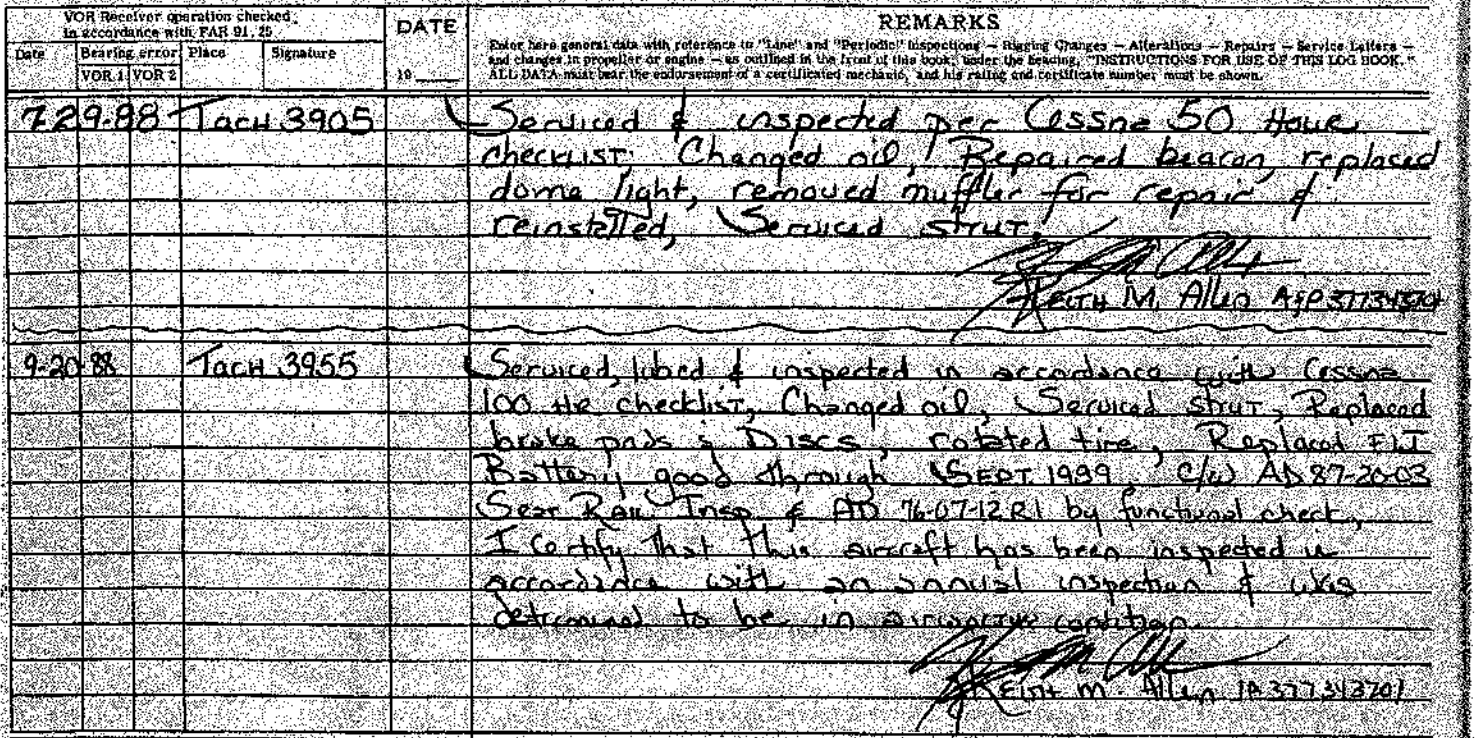 VOR Receiver operation checked
in accordance with FAR 91.25
Date Bearing error Place Signature
VOR 1 VOR 2
DATE
19
REMARKS
Enter here general data with reference to "Line" and "Periodic" Inspections — Rigging Changes — Alterations — Repairs — Service Letters —
and changes in propeller or engine — as outlined in the front of this book, under the heading, "INSTRUCTIONS FOR USE OF THIS LOG BOOK."
ALL DATA must bear the endorsement of a certificated mechanic, and his rating and certificate number must be shown.
7-29-88 Tach 3905 Serviced & inspected per Cessna 50 Hour
checklist, Changed oil, Repaired beacon, replaced
dome light, removed muffler for repair &
reinstalled, Serviced strut.
Keith M. Allen A&P 377343701
9-20-88 Tach 3955 Serviced, lubed & inspected in accordance with Cessna
100 HR checklist, Changed oil, Serviced strut, Replaced
brake pads & Discs, rotated tire, Replaced ELT
Battery good through SEPT 1989, C/W AD 87-20-03
Seat Rail Insp & AD 76-07-12 R1 by functional check,
I Certify that this aircraft has been inspected in
accordance with an annual inspection & was
determined to be in airworthy condition.
Keith M. Allen IA 377343701